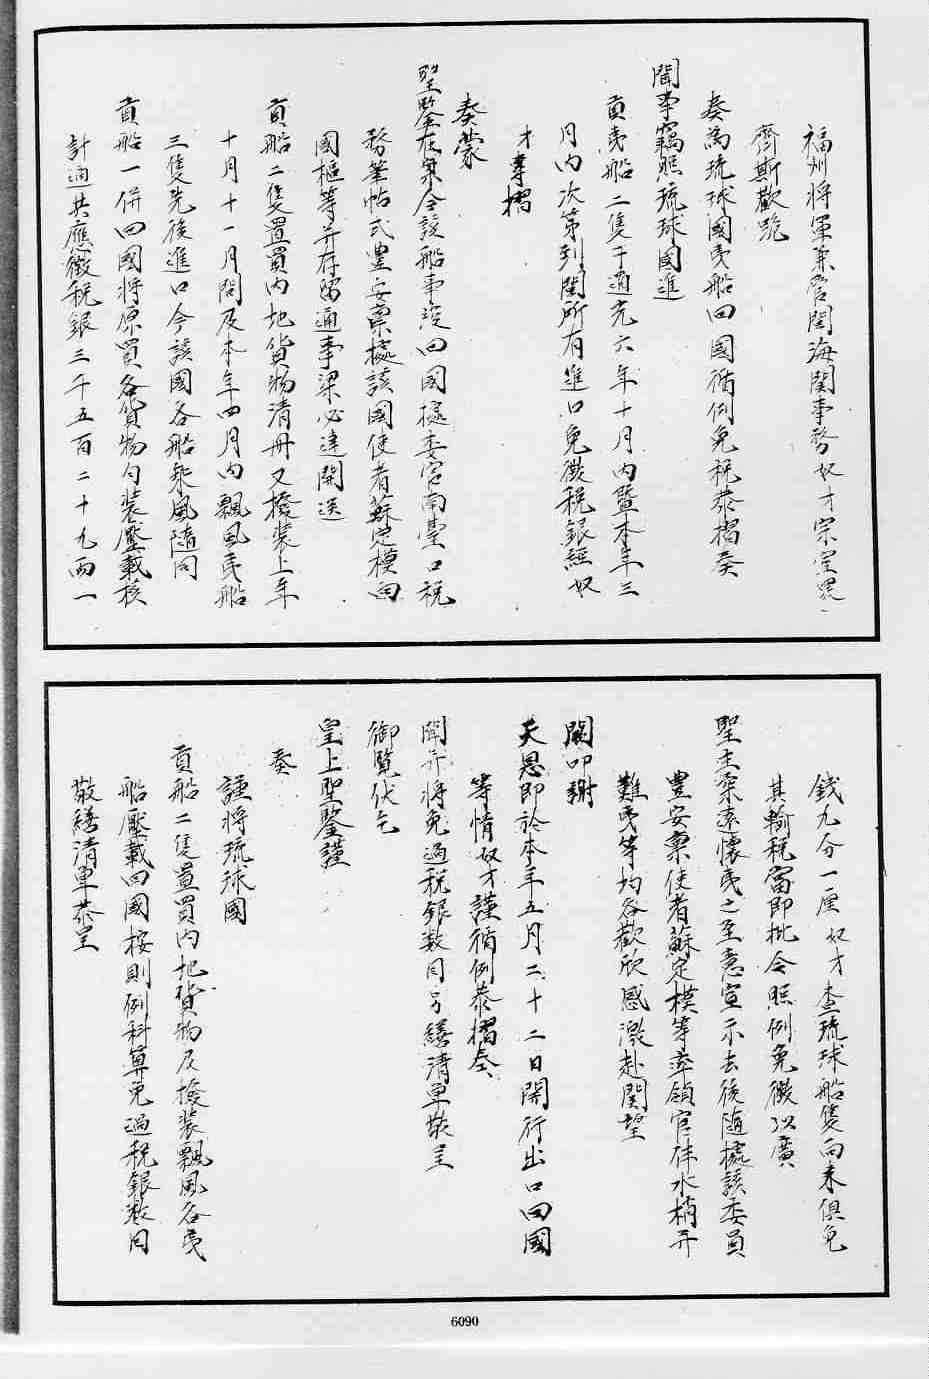 福州將軍兼管閩海關事務奴才宗室
齊斯歡跪
奏為琉球國夷船回國循例免稅恭摺奏
聞事竊照琉球國進
貢夷船二隻于道光六年十月內暨本年三
月內次第到關所有進口免徵稅銀經奴
才專摺
奏蒙
聖鑒在案今該船事竣回國據委官南臺口稅
務筆帖式豐安稟據該國使者蘇定模向
國樞等并存留通事梁必達開送
貢船二隻置買內地貨物清冊又撥裝上年
十月十一月間及本年四月內飄風夷船
三隻先後進口今該國各船乘風隨同
貢船一併回國將原買各貨物勻裝壓載核
計通共應徵稅銀三千五百二十九兩一
錢九分一厘奴才查琉球船隻向來俱免
其輸稅當即批令照例免徵以廣
聖主柔遠懷夷之至意宣示去後隨據該委員
豐安稟使者蘇定模等率領官伴水梢并
難夷等均各歡欣感激赴關望
闕叩謝
天恩即於本年五月二十二日開行出口回國
等情奴才謹循例恭摺奏
聞并將免過稅銀數目另繕清單敬呈
御覽伏乞
皇上聖鑒謹
奏
謹將琉球國
貢船二隻置買內地貨物及撥裝飄風各夷
船壓載回國按則例科算免過稅銀數目
敬繕清單恭呈
6090